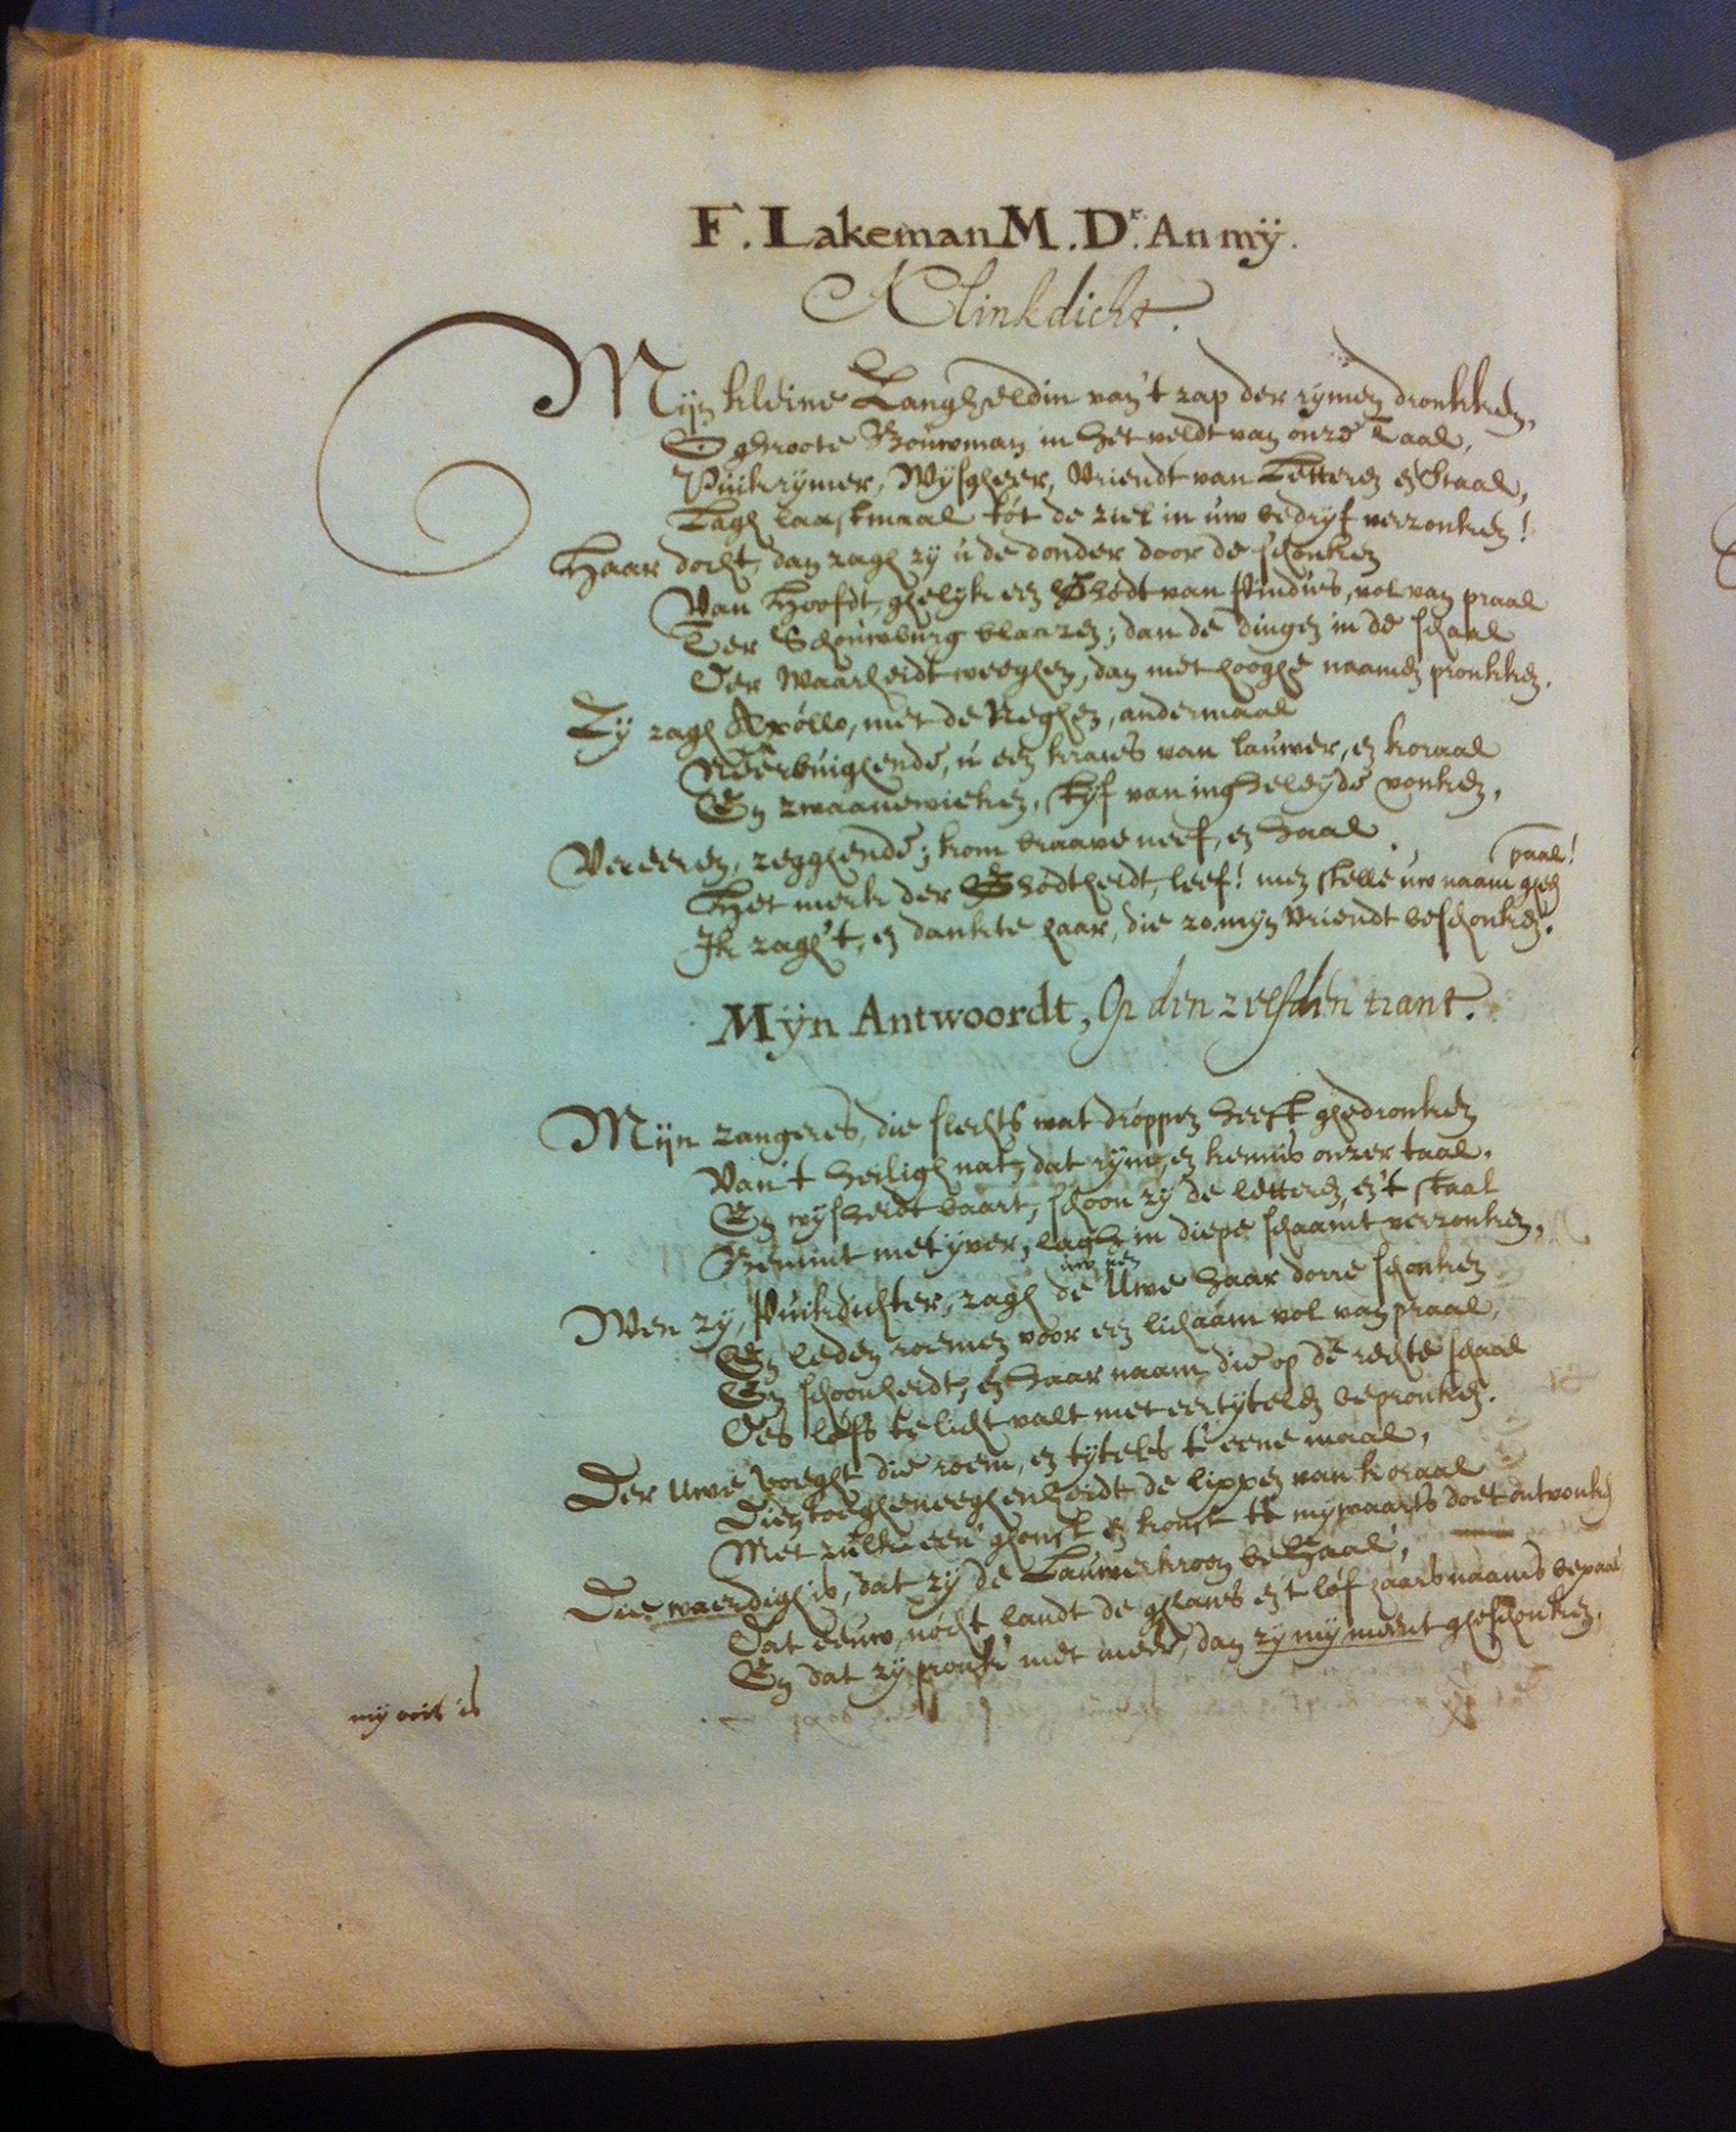 F. Lakeman M. Dr. An mÿ.
Klinkdicht.
Mijn kleine Zangheldin van't zap der rymen dronkken,
O ghroote Bouwman in het veldt van onze Taal,
Puikrymer, Wysgheer, Vriendt van Letteren en Staal,
Zagh laastmaal tót de ziel in uw bedryf verzonken!
Haar docht, dan zagh zy u de donder door de schonken
Van Hoofdt, ghelyk een Ghódt van Pindus, vol van praal
Ter Schouwburg blaazen; dan de dingen in de schaal
Der Waarheidt weeghen, dan met hooghe naamen pronkken.
Zy zagh Apóllo, met de Neghen, andermaal
Neêrbuighende, u een krans van lauwer, en koraal
En zwaanewieken, styf van ingheleyde vonken,
Vereeren, zegghende; kom braave neef, en haal
Het merk der Ghódtheidt, leef! men stelle uw naam gheen
paal!
Ik zagh't, en dankte haar, die zo myn Vriendt beschonken.
Mÿn Antwoordt, Op den zelfden trant.
Mijn zangeres, die slechts wat dróppen heeft ghedronken
Van't heiligh nat, dat rym, en kennis onzer taal,
En wysheidt baart, schoon zy de letteren, en't staal
Bemint met yver, lagh in diepe schaamt verzonken,
uw pen
Wen zy, Puikdichter, zagh de Uwe haar dorre schonken
En leden roemen voor een lichaam vol van praal,
En schoonheidt, en haar naam, die op de rechte schaal
Des lófs te licht valt met eertytelen bepronken.
Der Uwe voeght die roem, en tytels t'eene maal,
Dien toegheneeghenheidt de lippen van koraal
Met zulk een' gonst en konst te mywaarts doet ontvonken
Die waerdigh is, dat zy de Lauwerkroon behaal',
Dat eeuw, nócht landt de ghlans en't lóf haars naams bepaal'
En dat zy pronk' met meer, dan zy my meent gheschonken.
my ooit is